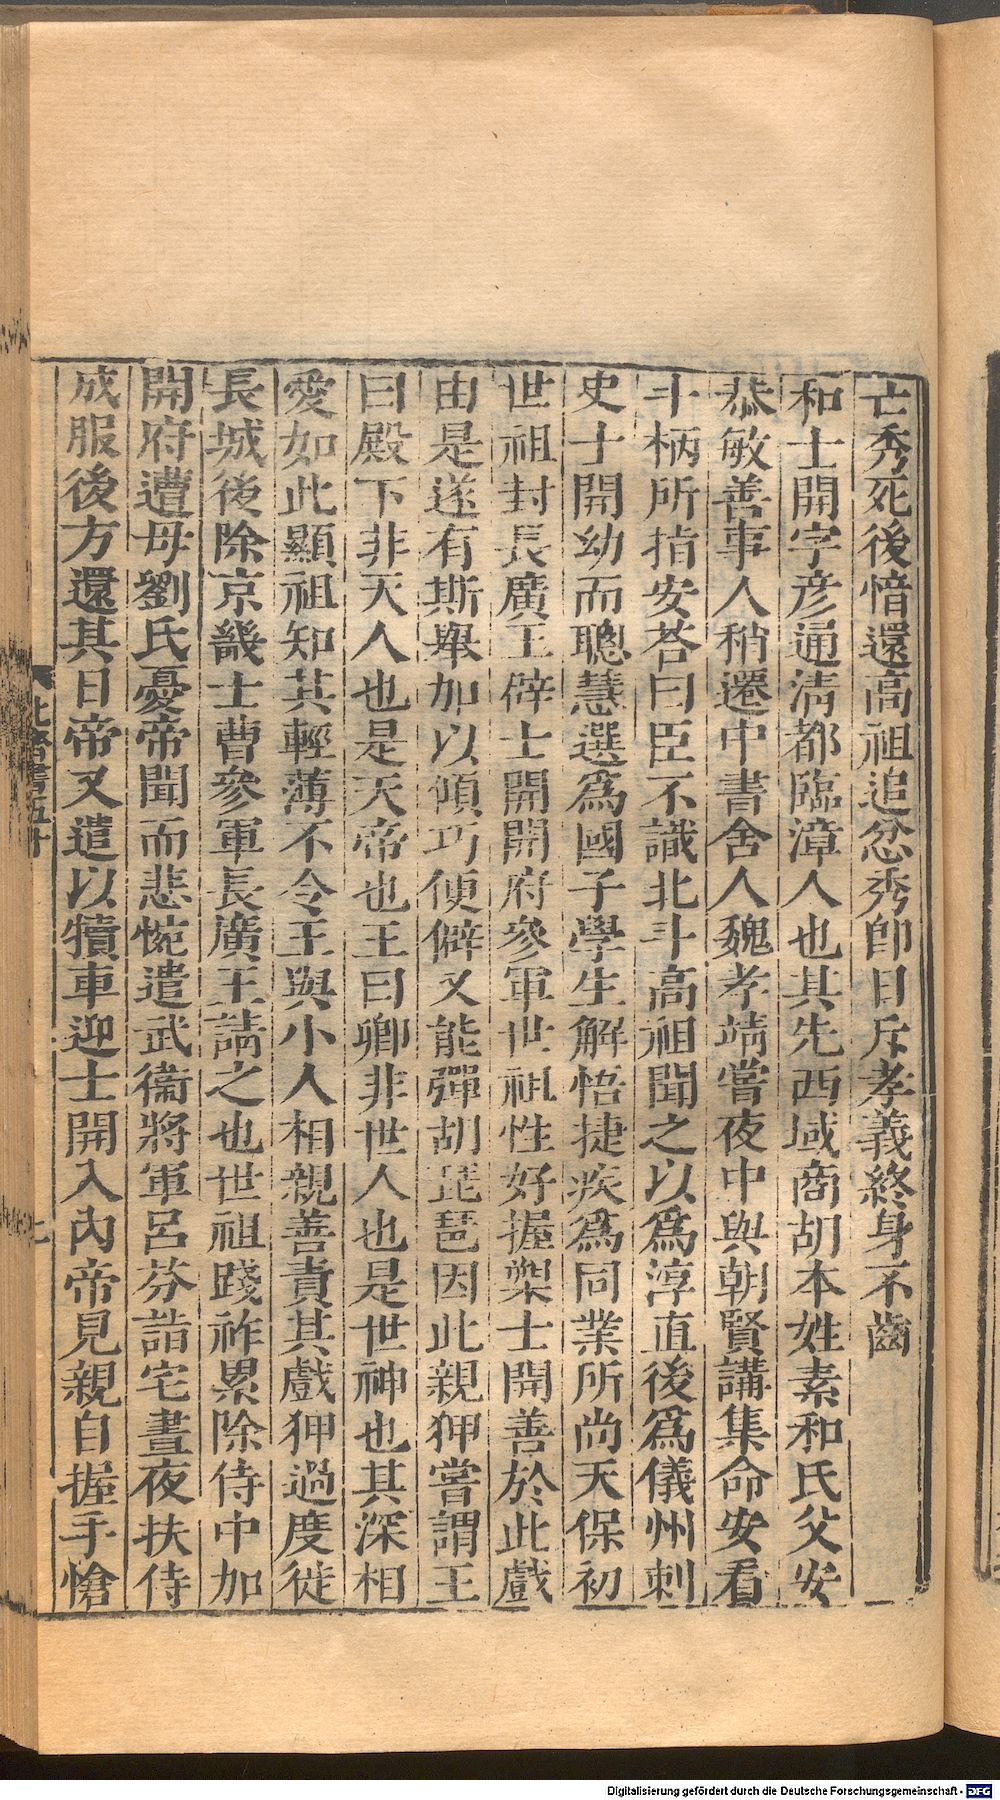 亡秀死後愔還高祖追忿秀卽日斥孝義終身不齒
和士開字彦通淸都臨漳人也其先西域商胡本姓素和氏父安
恭敏善事人稍遷中書舍人魏孝靖嘗夜中與朝賢講集命安看
斗柄所指安荅曰臣不識北斗高祖聞之以爲淳直後爲儀州刺
史士開幼而聰慧選爲國子學生解悟捷疾爲同業所尚天保初
世祖封長廣王僻士開開府參軍世祖性好握槊士開善於此戲
由是遂有斯舉加以傾巧便僻又能彈胡琵琶因此親狎嘗謂王
曰殿下非天人也是天帝也王曰卿非世人也是世神也其深相
愛如此顯祖知其輕薄不令王與小人相親善責其戲狎過度徙
長城後除京畿士曹參軍長廣王請之也世祖踐祚累除侍中加
開府遭母劉氏憂帝聞而悲惋遣武衞將軍呂芬詣宅晝夜扶侍
成服後方還其日帝又遣以犢車迎士開入內帝見親自握手愴
北齊書五十
七
Digitalisierung gefördert durch die Deutsche Forschungsgemeinschaft - DFG